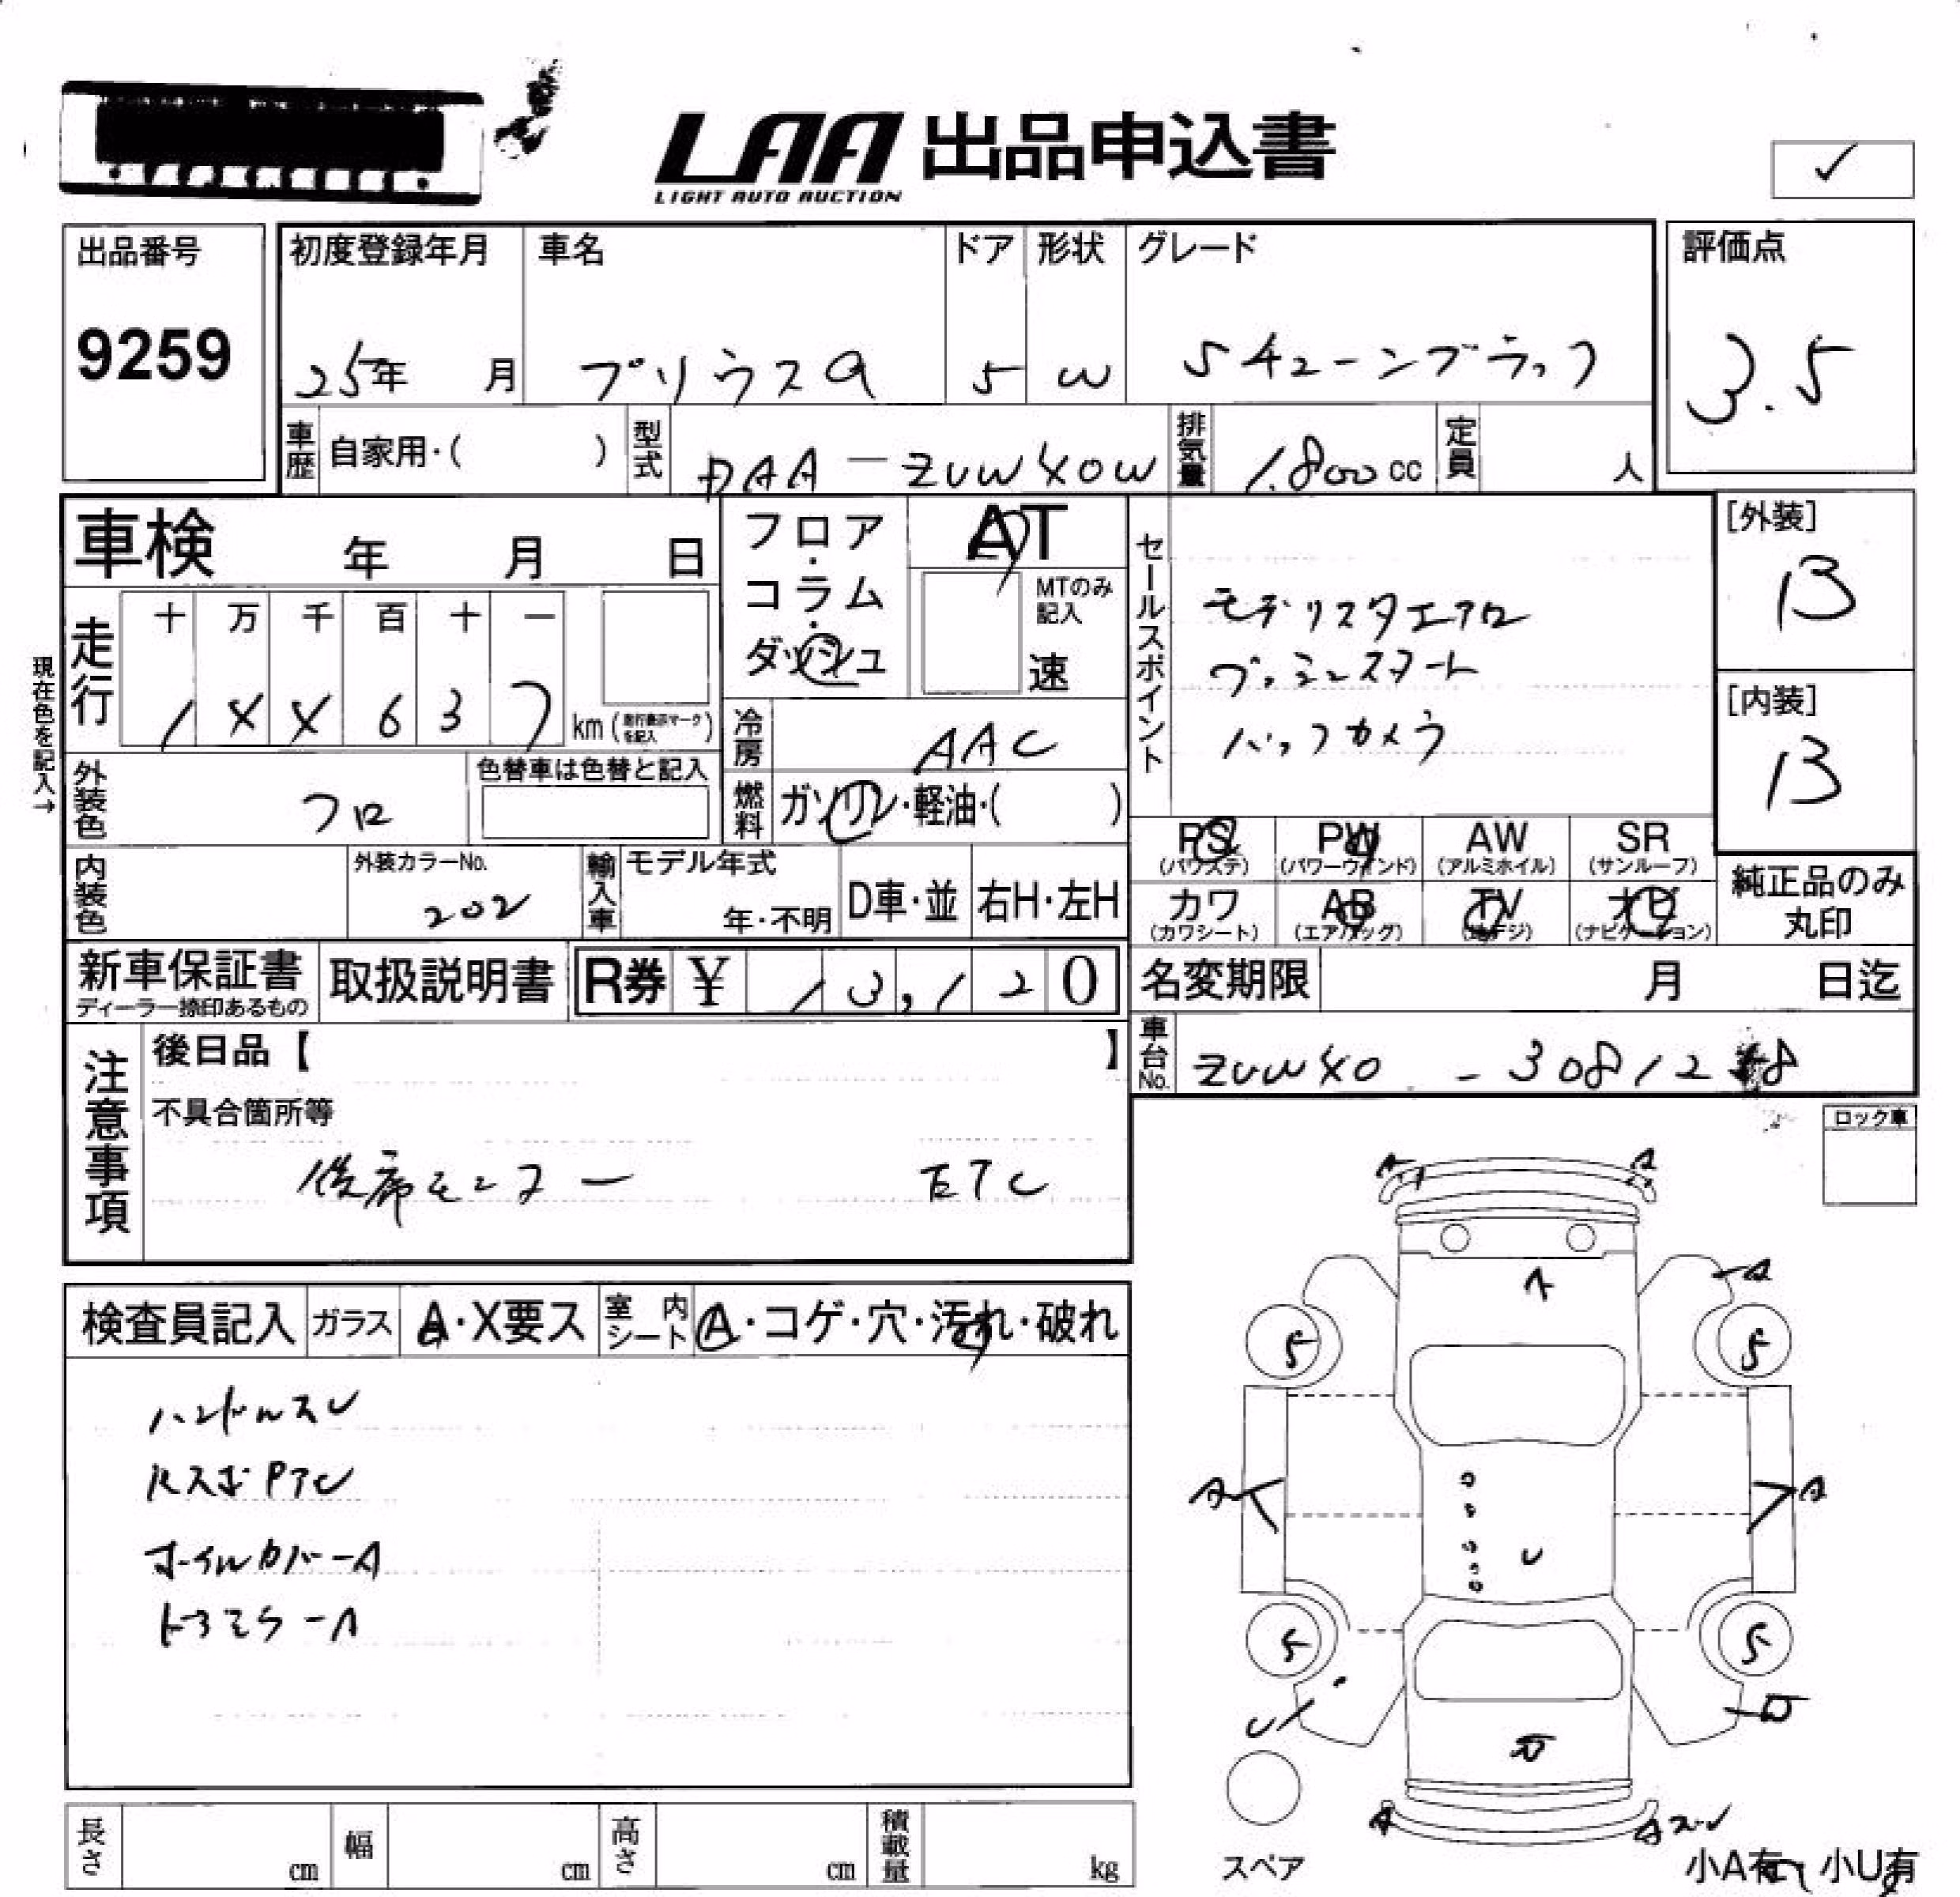 LAA 出品申込書
LIGHT AUTO AUCTION
✓
出品番号
9259
初度登録年月
25年 月
車名
プリウスα
ドア
5
形状
W
グレード
Sチューンブラック
評価点
3.5
車歴 自家用・( )
型式 DAA-ZVW40W
排気量 1.800cc
定員 人
車検 年 月 日
フロア・コラム・ダッシュ
AT
MTのみ記入
速
セールスポイント
モデリスタエアロ
プッシュスタート
バックカメラ
[外装]
B
[内装]
B
現在色を記入→
走行
十 万 千 百 十 一
637
km (走行表示マークを記入)
冷房 AAC
燃料 ガソリン・軽油・( )
外装色 クロ
色替車は色替と記入
内装色
外装カラーNo.
202
輸入車
モデル年式
年・不明
D車・並
右H・左H
PS (パワステ)
PW (パワーウィンド)
AW (アルミホイル)
SR (サンルーフ)
カワ (カワシート)
AB (エアバッグ)
TV (地デジ)
ナビ (ナビゲーション)
純正品のみ丸印
新車保証書
ディーラー捺印あるもの
取扱説明書
R券 ¥ 13,120
名変期限 月 日迄
車台No. ZVW40 - 30812
注意事項
後日品【 】
不具合箇所等
後席モニター ETC
ロック車
検査員記入
ガラス A・X要ス
室内シート A・コゲ・穴・汚れ・破れ
ハンドルスレ
ホイルカバーA
ドアミラーA
A
A
A
A
5
5
A
A
U
5
5
U
A
スペア
小A有 小U有
長さ cm
幅 cm
高さ cm
積載量 kg